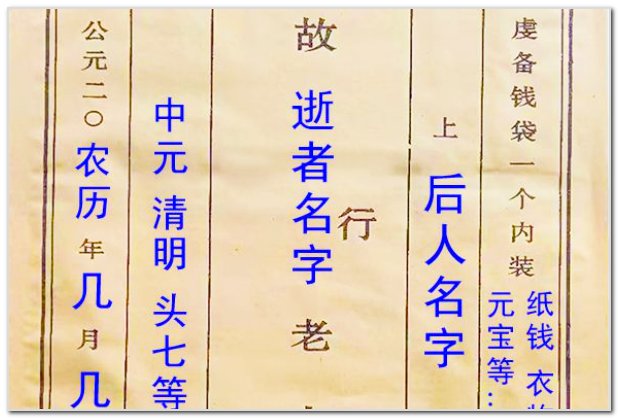 虔备钱袋一个内装
纸钱 衣
元宝等:
上 后人名字
行
故 逝者名字 老
中元 清明 头七等
公元二〇农历年几月几